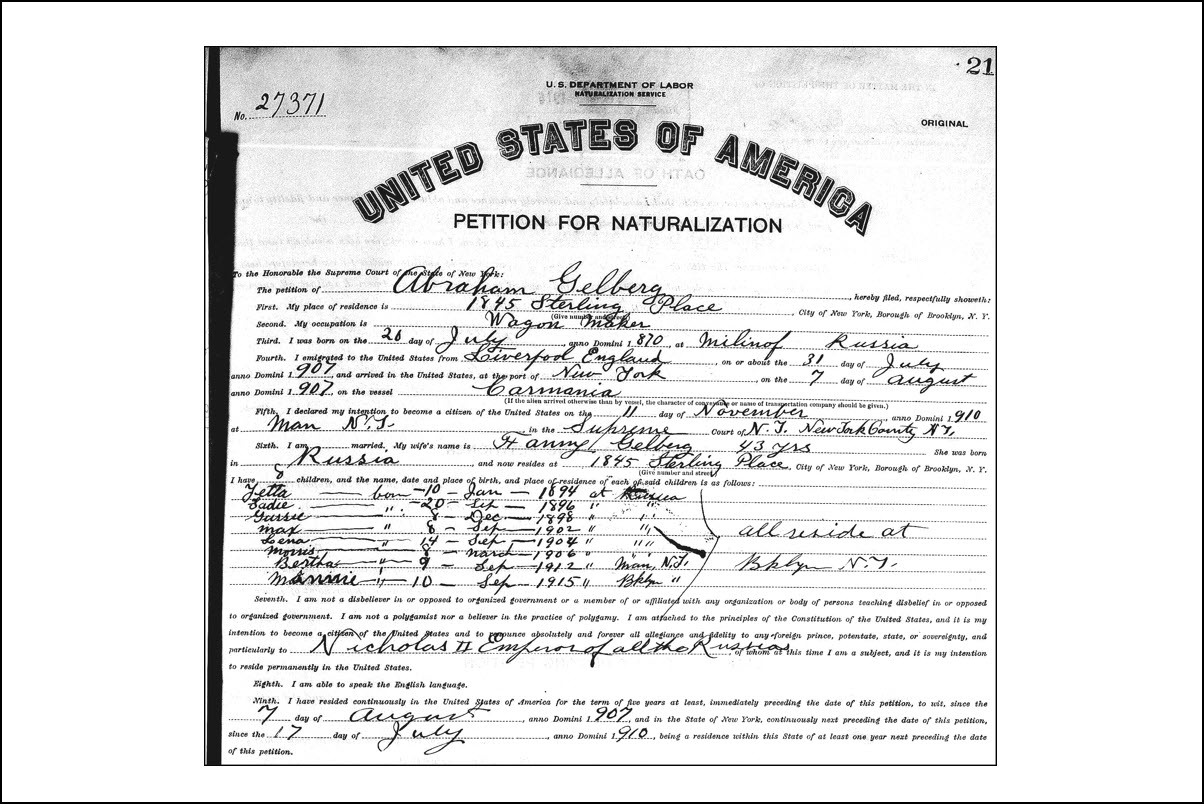 21
U. S. DEPARTMENT OF LABOR
NATURALIZATION SERVICE
No. 27371
ORIGINAL
UNITED STATES OF AMERICA
OATH OF ALLEGIANCE
PETITION FOR NATURALIZATION
To the Honorable the Supreme Court of the State of New York:
The petition of Abraham Gelberg, hereby filed, respectfully showeth:
First. My place of residence is 1845 Sterling Place, City of New York, Borough of Brooklyn, N. Y.
(Give number and street)
Second. My occupation is Wagon Maker
Third. I was born on the 20 day of July, anno Domini 1870, at Milinof Russia
Fourth. I emigrated to the United States from Liverpool England on or about the 31 day of July
anno Domini 1907, and arrived in the United States, at the port of New York, on the 7 day of August
anno Domini 1907, on the vessel Carmania
(If the alien arrived otherwise than by vessel, the character of conveyance or name of transportation company should be given.)
Fifth. I declared my intention to become a citizen of the United States on the 11 day of November anno Domini 1910
at Man N.Y. in the Supreme Court of N.Y. New York County N.Y.
Sixth. I am married. My wife's name is Fanny Gelberg 43 yrs She was born
in Russia and now resides at 1845 Sterling Place, City of New York, Borough of Brooklyn, N. Y.
(Give number and street)
I have 8 children, and the name, date and place of birth, and place of residence of each of said children is as follows:
Yetta born - 10 - Jan - 1894 at Russia
Sadie " - 20 - Sep - 1896 " "
Gussie " 8 - Dec - 1898 " "
Max " 8 - Sep - 1902 " " all reside at
Lena " 14 - Sep - 1904 " "
Morris " 8 - March - 1906 "
Bertha " 9 - Sep - 1912 " Man, N.Y. Bklyn N.Y.
Minnie " 10 - Sep - 1915 " Bklyn "
Seventh. I am not a disbeliever in or opposed to organized government or a member of or affiliated with any organization or body of persons teaching disbelief in or opposed
to organized government. I am not a polygamist nor a believer in the practice of polygamy. I am attached to the principles of the Constitution of the United States, and it is my
intention to become a citizen of the United States and to renounce absolutely and forever all allegiance and fidelity to any foreign prince, potentate, state, or sovereignty, and
particularly to Nicholas II Emperor of all the Russias, of whom at this time I am a subject, and it is my intention
to reside permanently in the United States.
Eighth. I am able to speak the English language.
Ninth. I have resided continuously in the United States of America for the term of five years at least, immediately preceding the date of this petition, to wit, since the
7 day of August anno Domini 1907, and in the State of New York, continuously next preceding the date of this petition,
since the 17 day of July, anno Domini 1910, being a residence within this State of at least one year next preceding the date
of this petition.